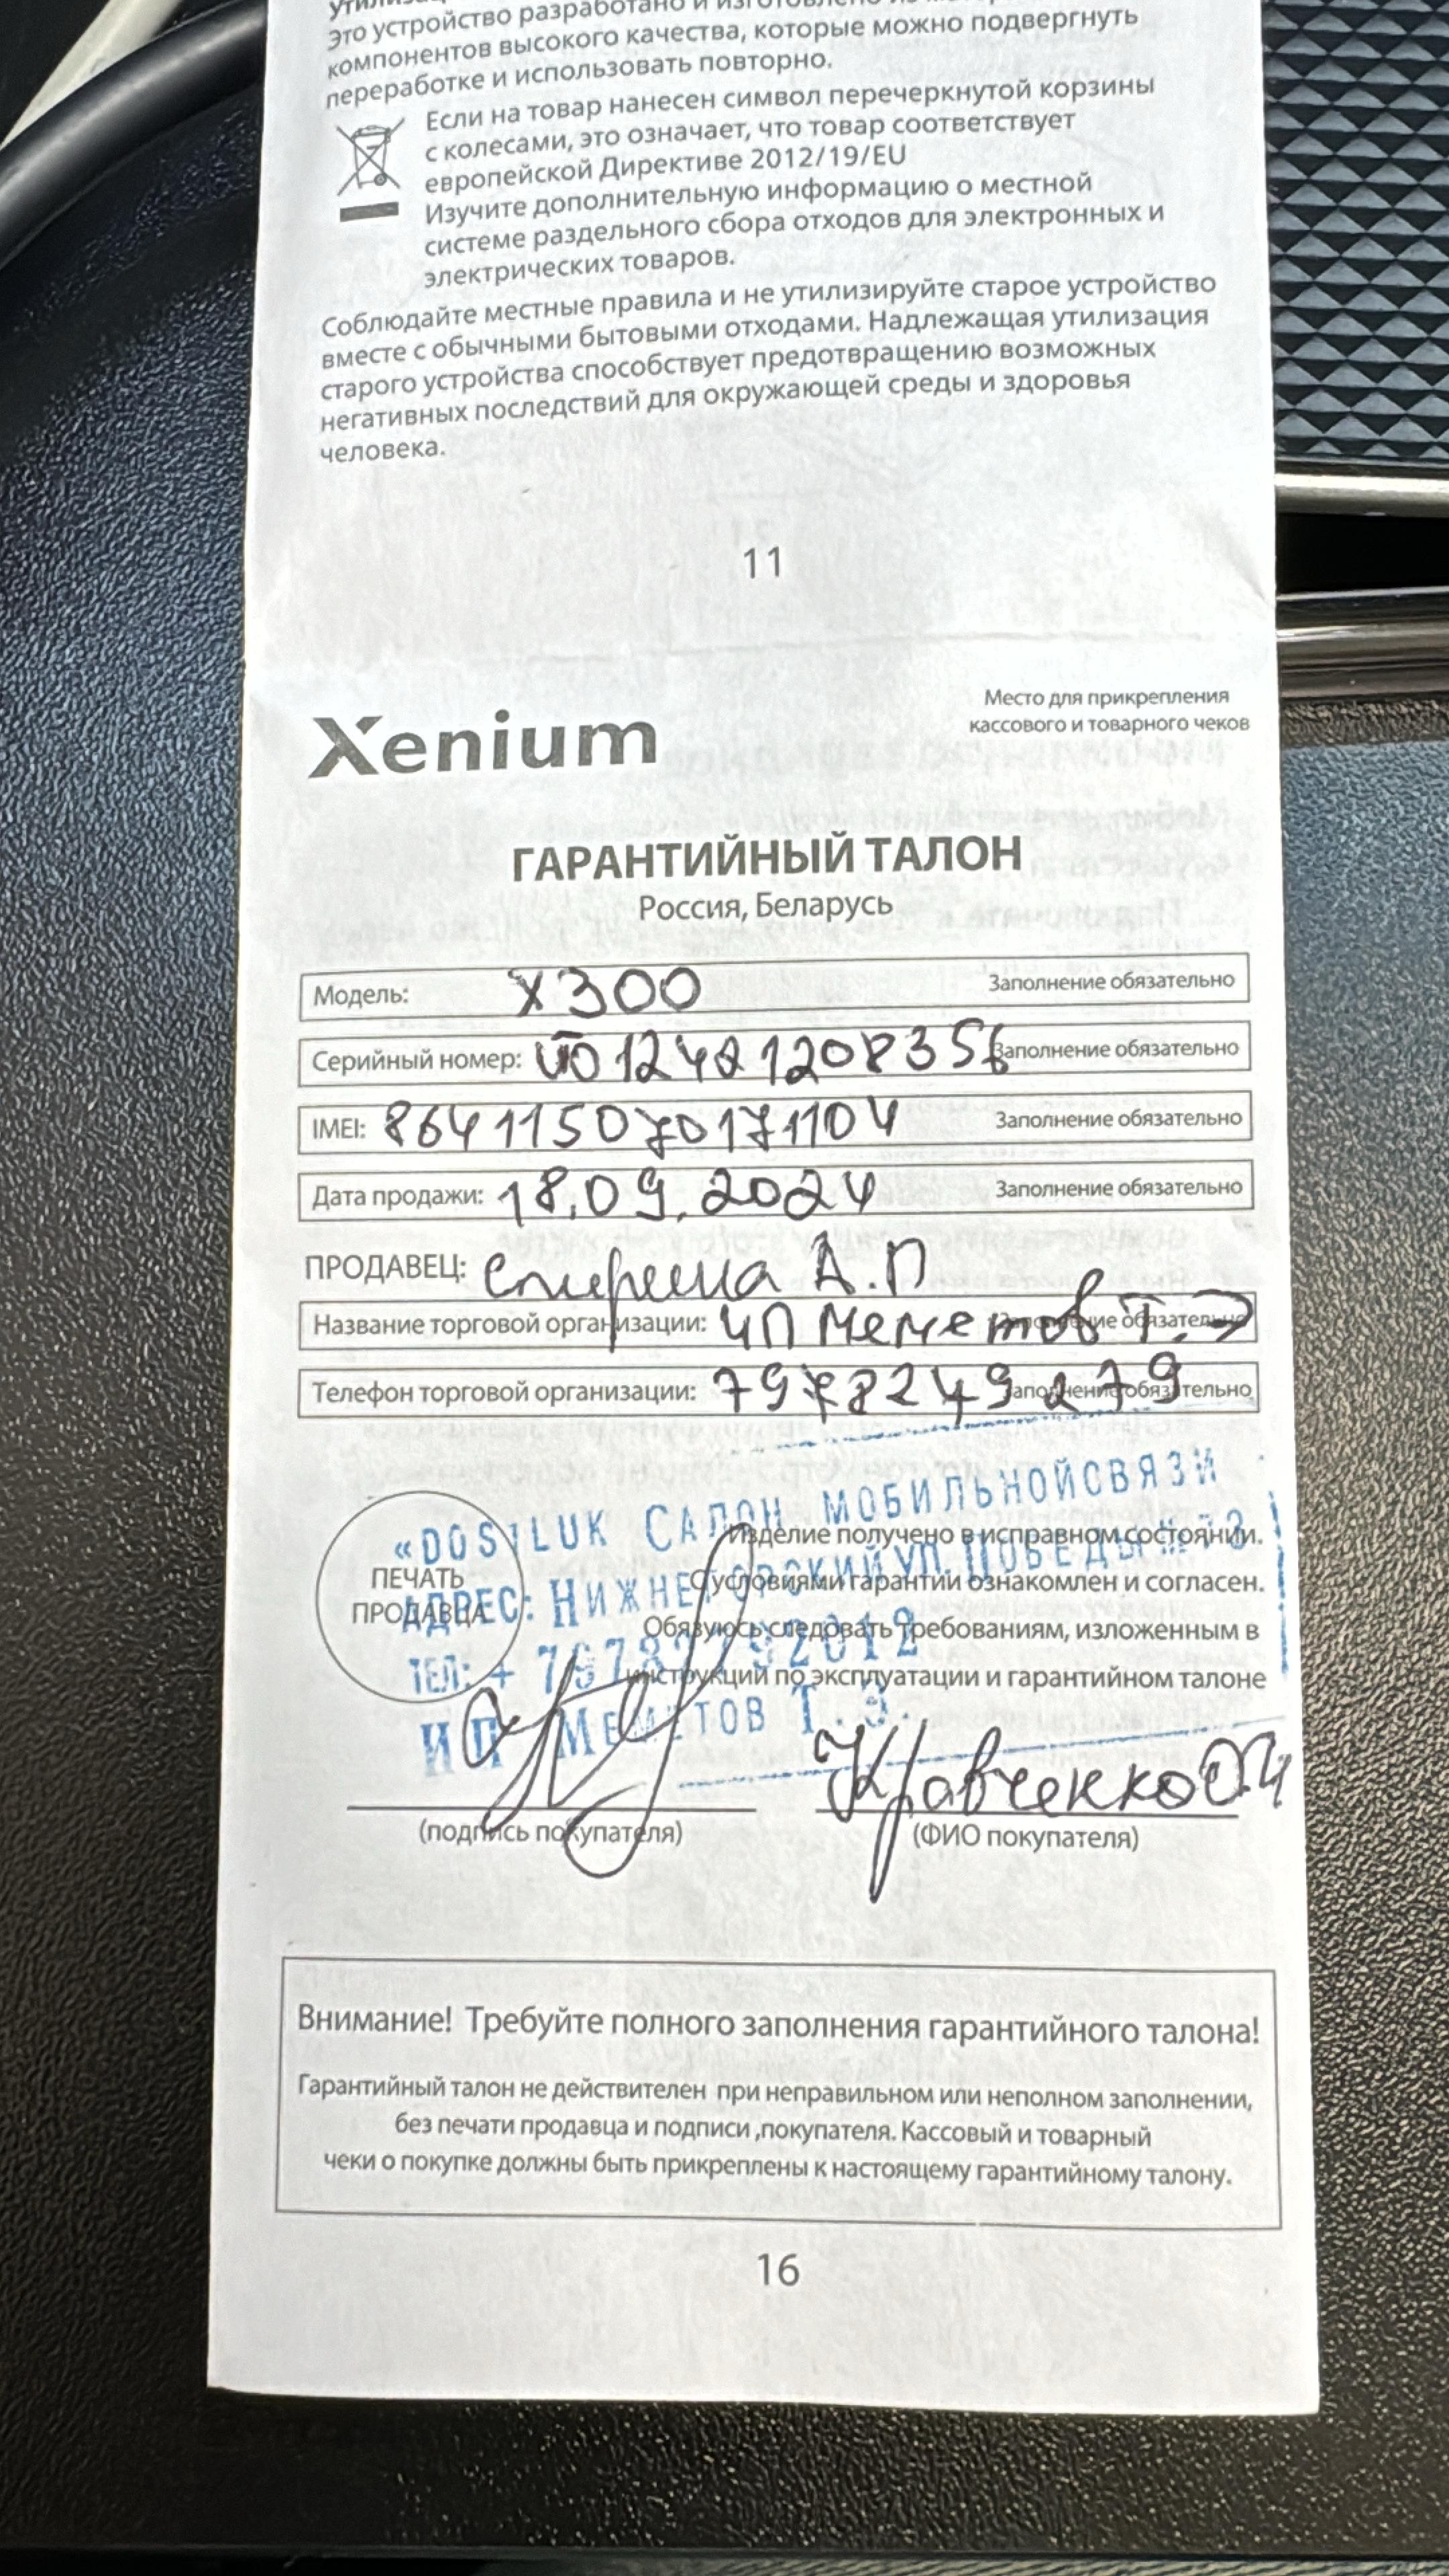 это устройство разработано и изготовлено из
компонентов высокого качества, которые можно подвергнуть
переработке и использовать повторно.
Если на товар нанесен символ перечеркнутой корзины
с колесами, это означает, что товар соответствует
европейской Директиве 2012/19/EU
Изучите дополнительную информацию о местной
системе раздельного сбора отходов для электронных и
электрических товаров.
Соблюдайте местные правила и не утилизируйте старое устройство
вместе с обычными бытовыми отходами. Надлежащая утилизация
старого устройства способствует предотвращению возможных
негативных последствий для окружающей среды и здоровья
человека.
11
Место для прикрепления
кассового и товарного чеков
Xenium
ГАРАНТИЙНЫЙ ТАЛОН
Россия, Беларусь
Модель: X300 Заполнение обязательно
Серийный номер: Заполнение обязательно
IMEI: 864115070171104 Заполнение обязательно
Дата продажи: 18.09.2024 Заполнение обязательно
ПРОДАВЕЦ: А.П
Название торговой организации: ЧП Меметов Т.Э Заполнение обязательно
Телефон торговой организации: 7978249279 Заполнение обязательно
«DOSTLUK САЛОН МОБИЛЬНОЙСВЯЗИ
Изделие получено в исправном состоянии.
АДРЕС: НИЖНЕГОРСКИЙ УЛ. ПОБЕДЫ
ПЕЧАТЬ
ПРОДАВЦА
С условиями гарантии ознакомлен и согласен.
Обязуюсь следовать требованиям, изложенным в
ТЕЛ: +
инструкции по эксплуатации и гарантийном талоне
ИП МЕМЕТОВ Т.Э.
Кравченко
(подпись покупателя) (ФИО покупателя)
Внимание! Требуйте полного заполнения гарантийного талона!
Гарантийный талон не действителен при неправильном или неполном заполнении,
без печати продавца и подписи ,покупателя. Кассовый и товарный
чеки о покупке должны быть прикреплены к настоящему гарантийному талону.
16